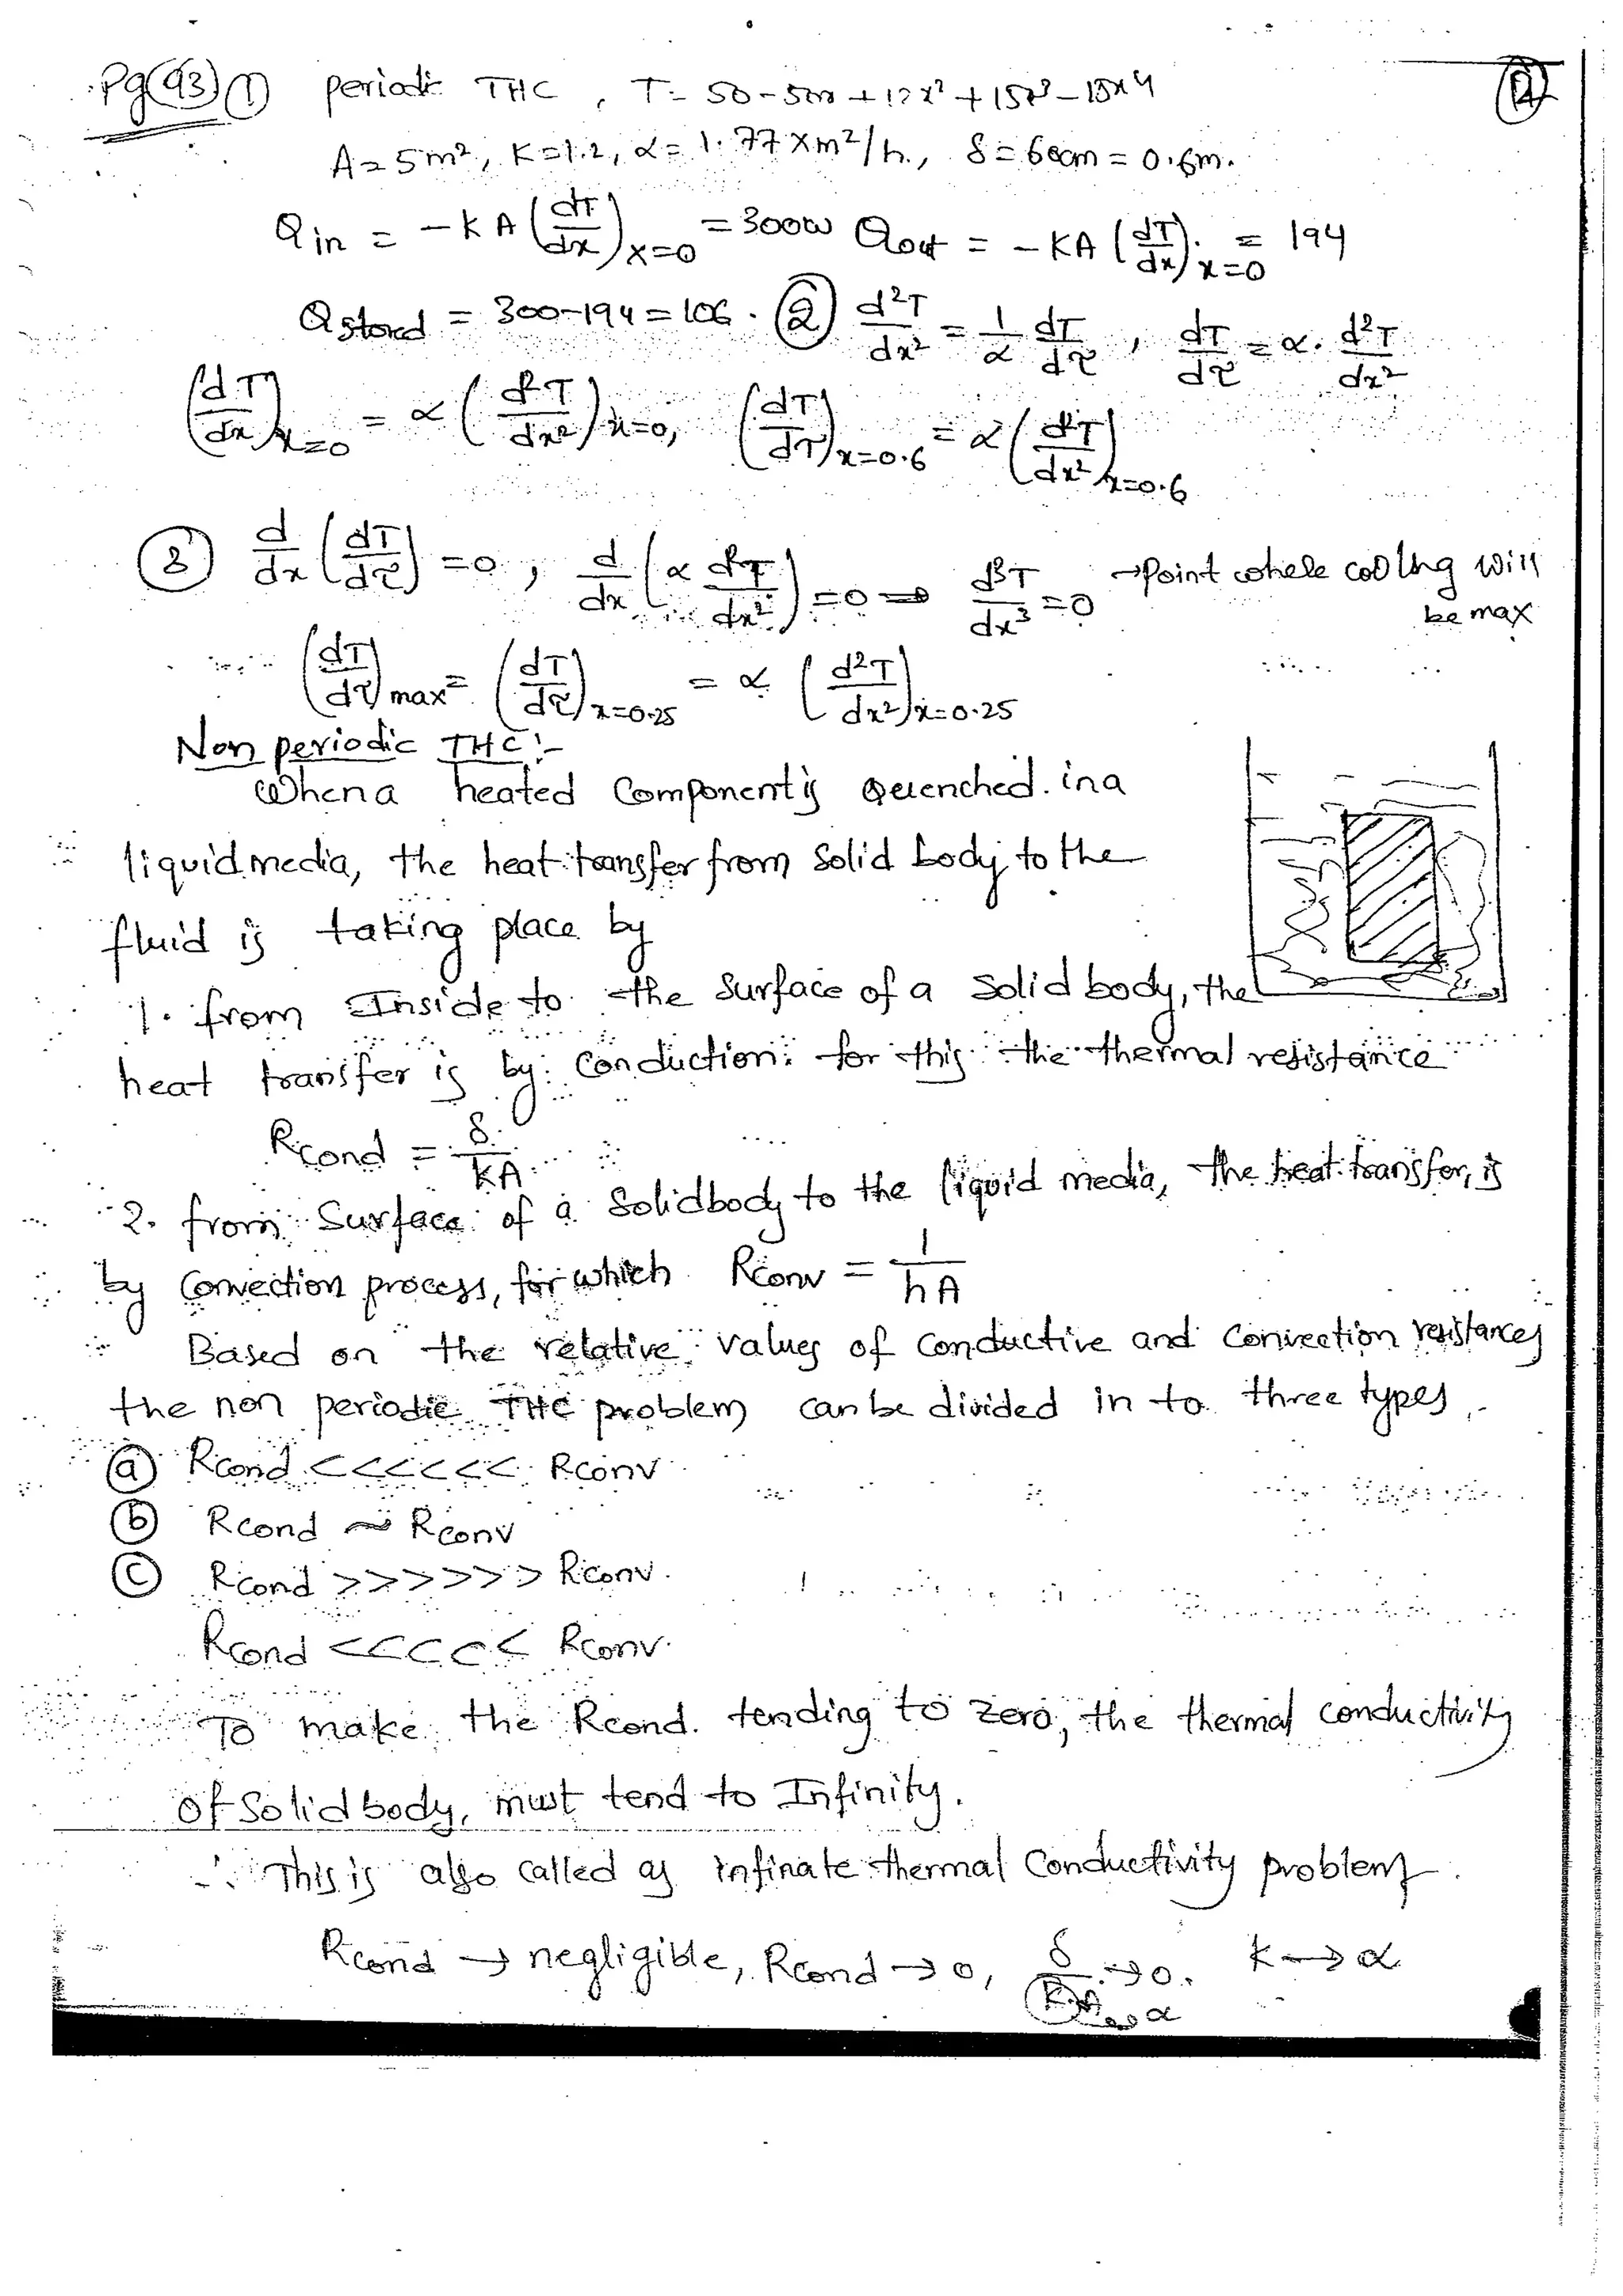 Pg(93) ① periodic THC, T= 50-50x+12x²+15x³-15x⁴
A=5m², K=1.2, α= 1.77×m²/h., δ=60cm = 0.6m.
Qin = -kA(dT/dx)x=0 =300W Qout = -KA(dT/dx)x=0 = 194
Qstored = 300-194=106. ② d²T/dx² = 1/α dT/dτ, dT/dτ = α. d²T/dx²
(dT/dx)x=0 = α(d²T/dx²)x=0, (dT/dτ)x=0.6 = α(d²T/dx²)x=0.6
③ d/dx(dT/dτ)=0, d/dx(α d²T/dx²)=0 ⇒ d³T/dx³=0 →Point where cooling will
be max
(dT/dτ)max= (dT/dτ)x=0.25 = α (d²T/dx²)x=0.25
Non periodic THC:-
When a heated Component is Quenched. in a
liquid media, the heat transfer from Solid body to the
fluid is taking place by
1. from Inside to the Surface of a Solid body, the
heat transfer is by conduction: for this the thermal resistance
Rcond = δ/kA
2. from Surface of a Solid body to the liquid media, the heat transfer, is
by Convection process, for which Rconv = 1/hA
Based on the relative values of conductive and convection resistances
the non periodic THC problem can be divided in to three types.
ⓐ Rcond <<<<<< Rconv
ⓑ Rcond ~ Rconv
ⓒ Rcond >>>>>>> Rconv.
Rcond <<<<< Rconv.
To make the Rcond. tending to zero, the thermal conductivity
of Solid body, must tend to Infinity.
∴ This is also called as infinate thermal Conductivity problem.
Rcond → negligible, Rcond → 0, δ/K.A → 0. k → α
α